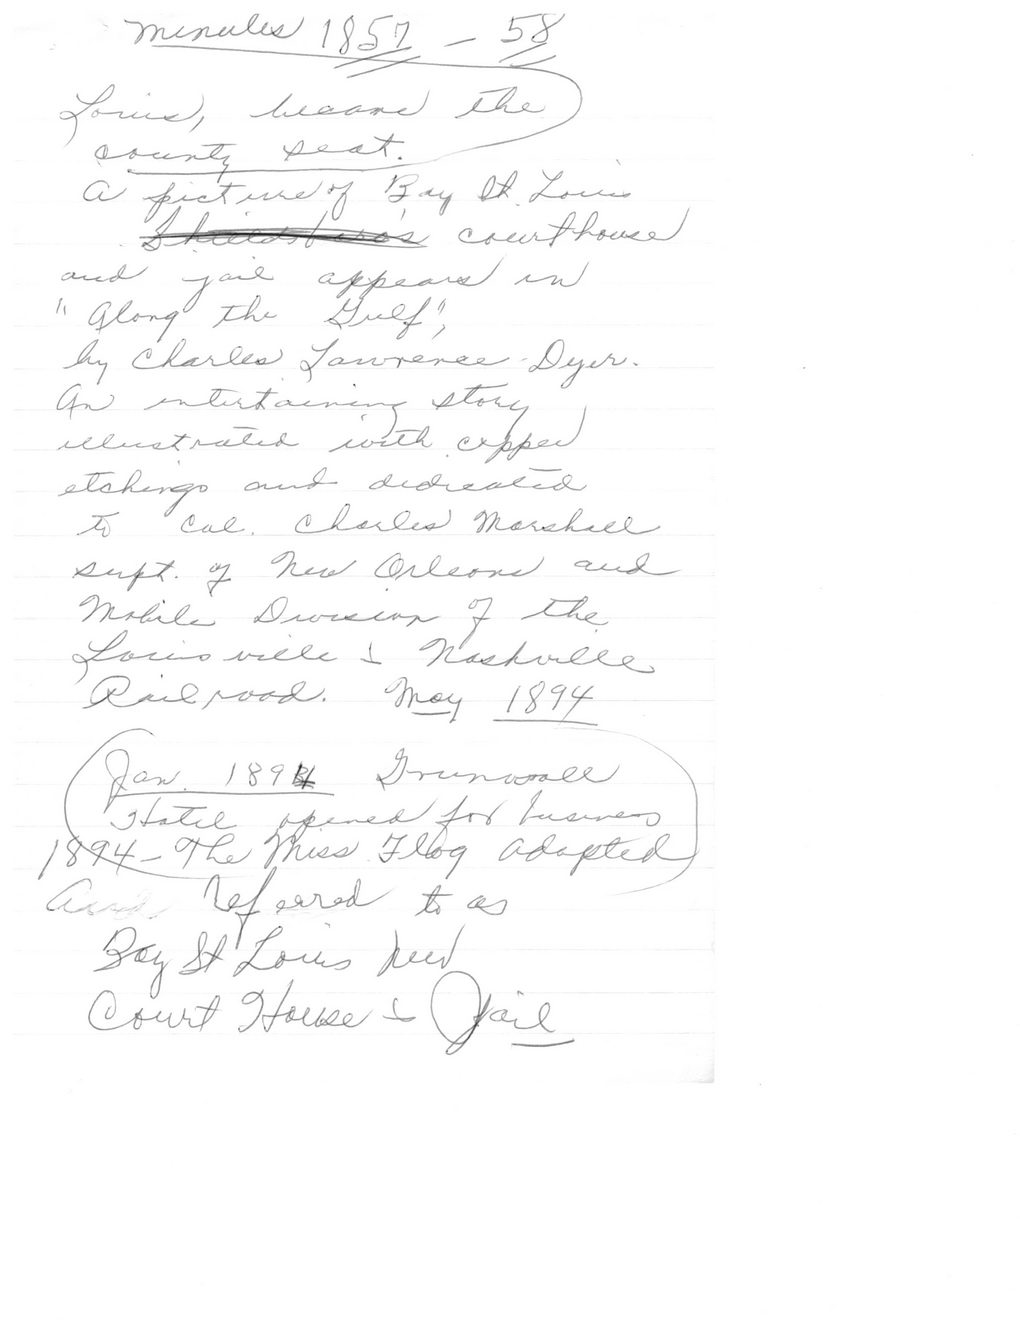 Minutes 1857 - 58
Louis, became the
county seat.
A picture of Bay St. Louis
Shieldsboro's courthouse
and jail appears in
"Along the Gulf",
by Charles Lawrence Dyer.
An entertaining story
illustrated with copper
etchings and dedicated
to Col. Charles Marshall
supt. of New Orleans and
Mobile Division of the
Louisville & Nashville
Railroad. May 1894
Jan. 1894 Grunwall
Hotel opened for business
1894 - The Miss Flag adapted
And referred to as
Bay St Louis new
Court House & Jail